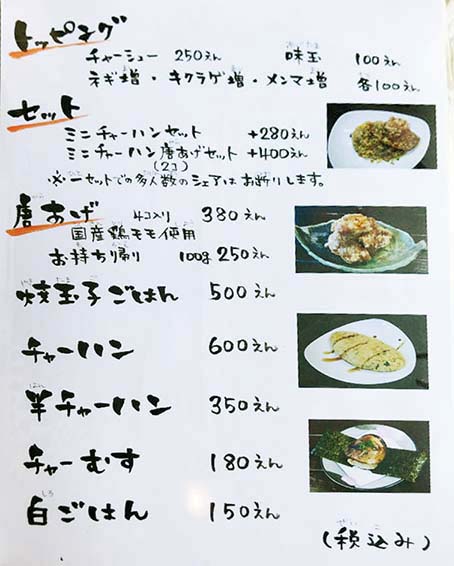 トッピング
チャーシュー 250えん 味玉 100えん
ネギ増・キクラゲ増・メンマ増 各100えん
セット
ミニチャーハンセット +280えん
ミニチャーハン唐あげセット +400えん
(2コ)
※一セットでの多人数のシェアはお断りします。
唐あげ 4コ入り 380えん
国産鶏モモ使用
お持ち帰り 100g 250えん
焼玉子ごはん 500えん
チャーハン 600えん
半チャーハン 350えん
チャーむす 180えん
白ごはん 150えん
(税込み)